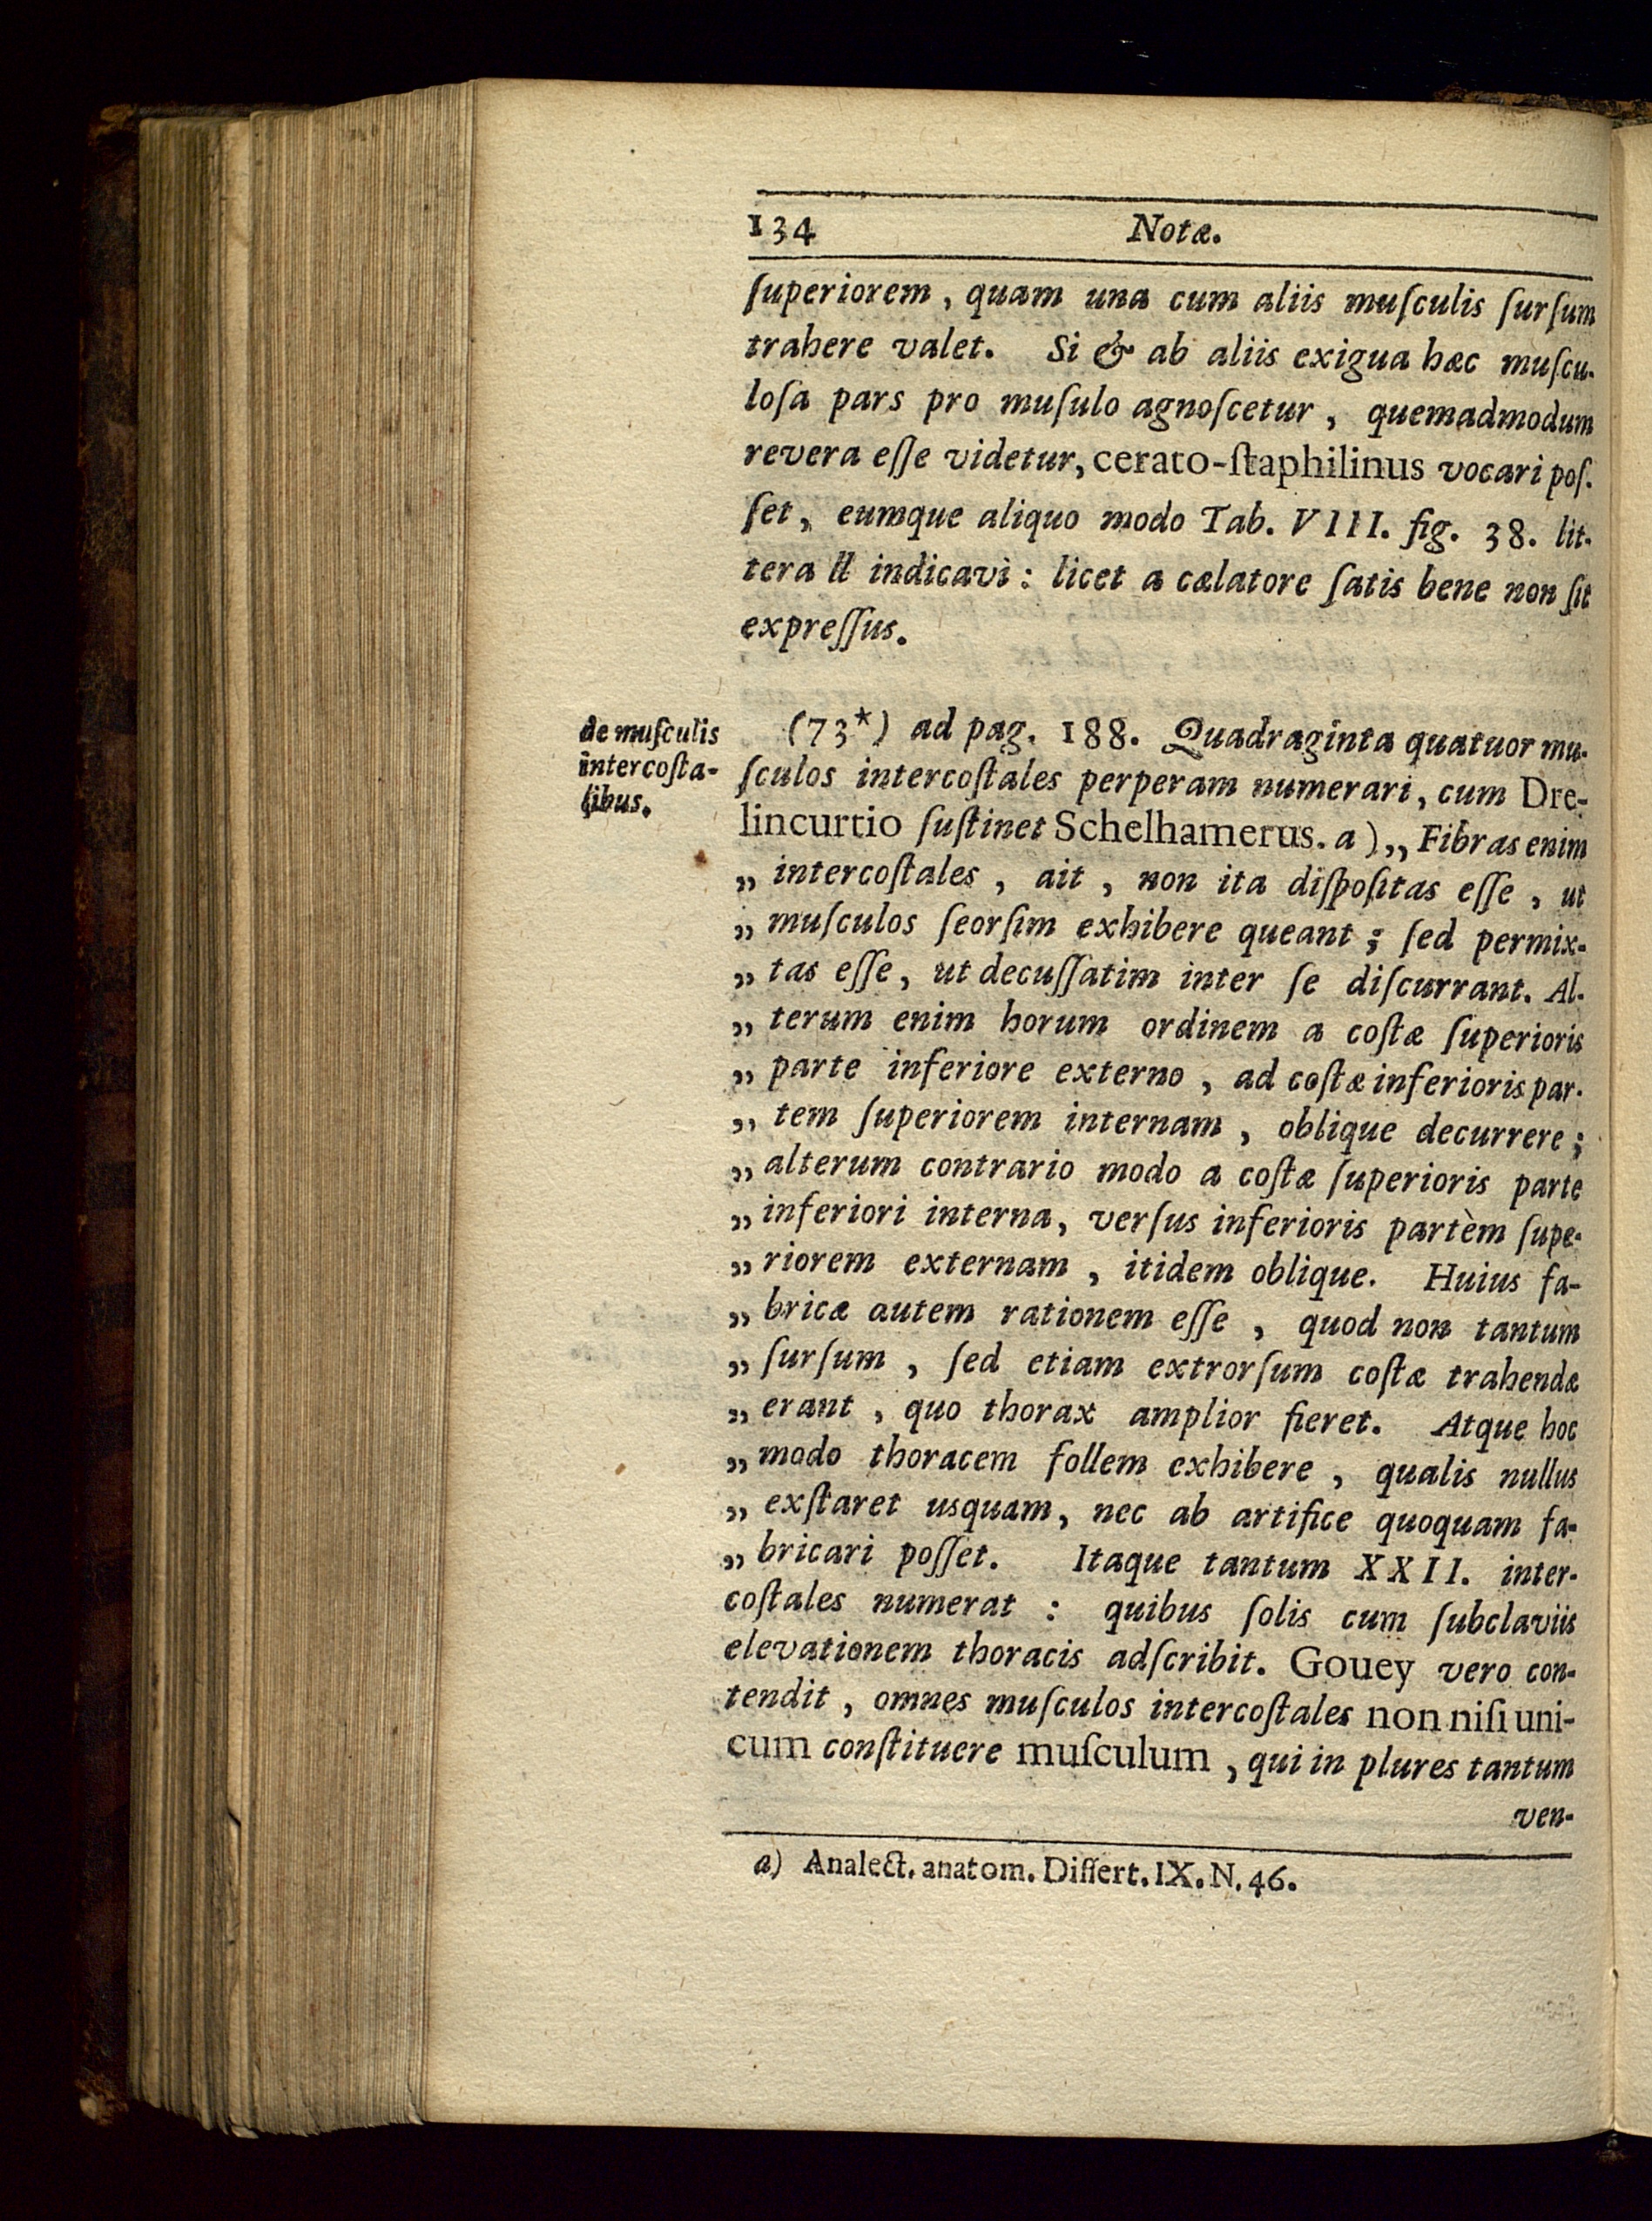 134 Notæ.
ſuperiorem, quam una cum aliis muſculis ſurſum
trahere valet. Si & ab aliis exigua hæc muſcu-
loſa pars pro muſulo agnoſcetur, quemadmodum
revera eſſe videtur, cerato-ſtaphilinus vocari poſ-
ſet, eumque aliquo modo Tab. VIII. fig. 38. lit-
tera ll indicavi: licet a cælatore ſatis bene non ſit
expreſſus.
de muſculis
intercoſta-
libus.
(73*) ad pag. 188. Quadraginta quatuor mu-
ſculos intercoſtales perperam numerari, cum Dre-
lincurtio ſuſtinet Schelhamerus. a) „ Fibras enim
„ intercoſtales, ait, non ita diſpoſitas eſſe, ut
„ muſculos ſeorſim exhibere queant; ſed permix-
„ tas eſſe, ut decuſſatim inter ſe diſcurrant. Al-
„ terum enim horum ordinem a coſtæ ſuperioris
„ parte inferiore externo, ad coſtæ inferioris par-
„ tem ſuperiorem internam, oblique decurrere;
„ alterum contrario modo a coſtæ ſuperioris parte
„ inferiori interna, verſus inferioris partèm ſupe-
„ riorem externam, itidem oblique. Huius fa-
„ bricæ autem rationem eſſe, quod non tantum
„ ſurſum, ſed etiam extrorſum coſtæ trahendæ
„ erant, quo thorax amplior fieret. Atque hoc
„ modo thoracem follem exhibere, qualis nullus
„ exſtaret usquam, nec ab artifice quoquam fa-
„ bricari poſſet. Itaque tantum XXII. inter-
coſtales numerat: quibus ſolis cum ſubclaviis
elevationem thoracis adſcribit. Gouey vero con-
tendit, omnes muſculos intercoſtales non niſi uni-
cum conſtituere muſculum, qui in plures tantum
ven-
a) Analect. anatom. Diſſert. IX. N. 46.